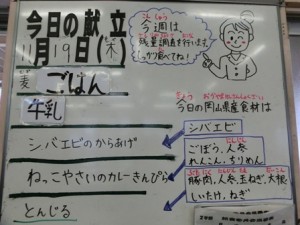 今日の献立
11月19日(木)
麦ごはん
牛乳
シバエビのからあげ
ねっこやさいのカレーきんぴら
とんじる
今週は、
残量調査を行います。
しっかり食べてね!
今日の岡山県産食材は
シバエビ
ごぼう,人参
れんこん,ちりめん
豚肉,人参,玉ねぎ,大根
しいたけ,ねぎ